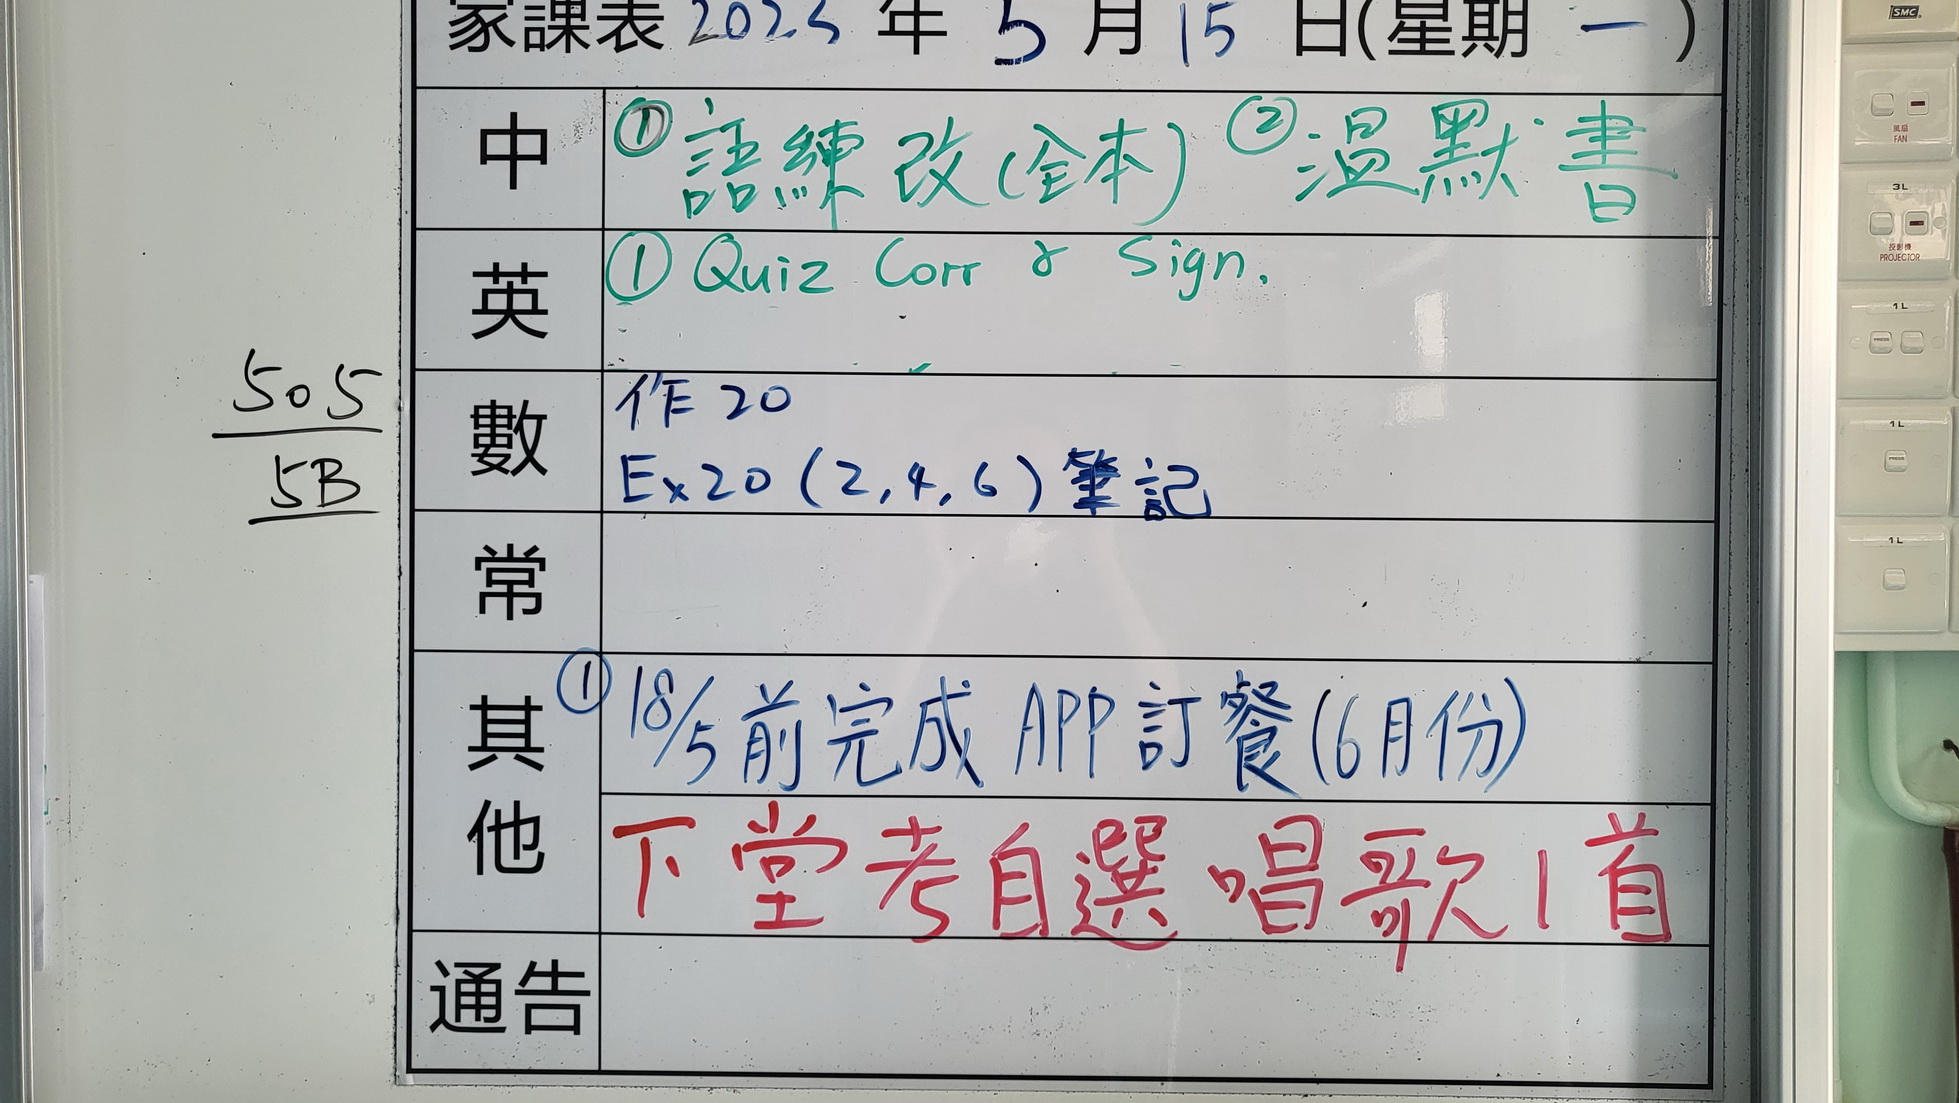 家課表 2023 年 5 月 15 日(星期 一 )
中 ① 語練改(全本) ② 溫默書
英 ① Quiz Corr & Sign.
數 作 20
Ex 20 (2, 4, 6) 筆記
常
其他 ① 18/5 前完成 APP 訂餐(6月份)
下堂考自選唱歌1首
通告
505
5B
SMC
風扇
FAN
3L
投影機
PROJECTOR
1L
PRESS
1L
PRESS
1L